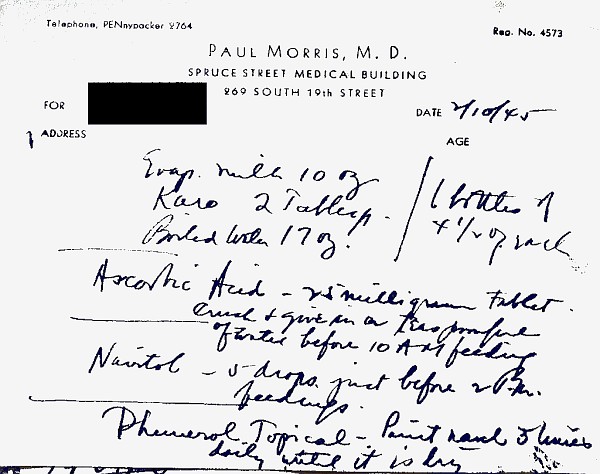 Telephone, PENnypacker 2764
Reg. No. 4573
PAUL MORRIS, M. D.
SPRUCE STREET MEDICAL BUILDING
269 SOUTH 19th STREET
FOR
DATE 2/10/45
ADDRESS
AGE
Evap. milk 10 oz
Karo 2 Tablesp.
Boiled Water 17 oz.
6 bottles of
4 1/2 oz each
Ascorbic Acid - 25 milligram tablet.
Crush & give in a teaspoonful
of water before 10 AM feeding
Navitol - 5 drops just before 2 P.M.
feedings.
Phemerol Topical - Paint navel 3 times
daily until it is dry